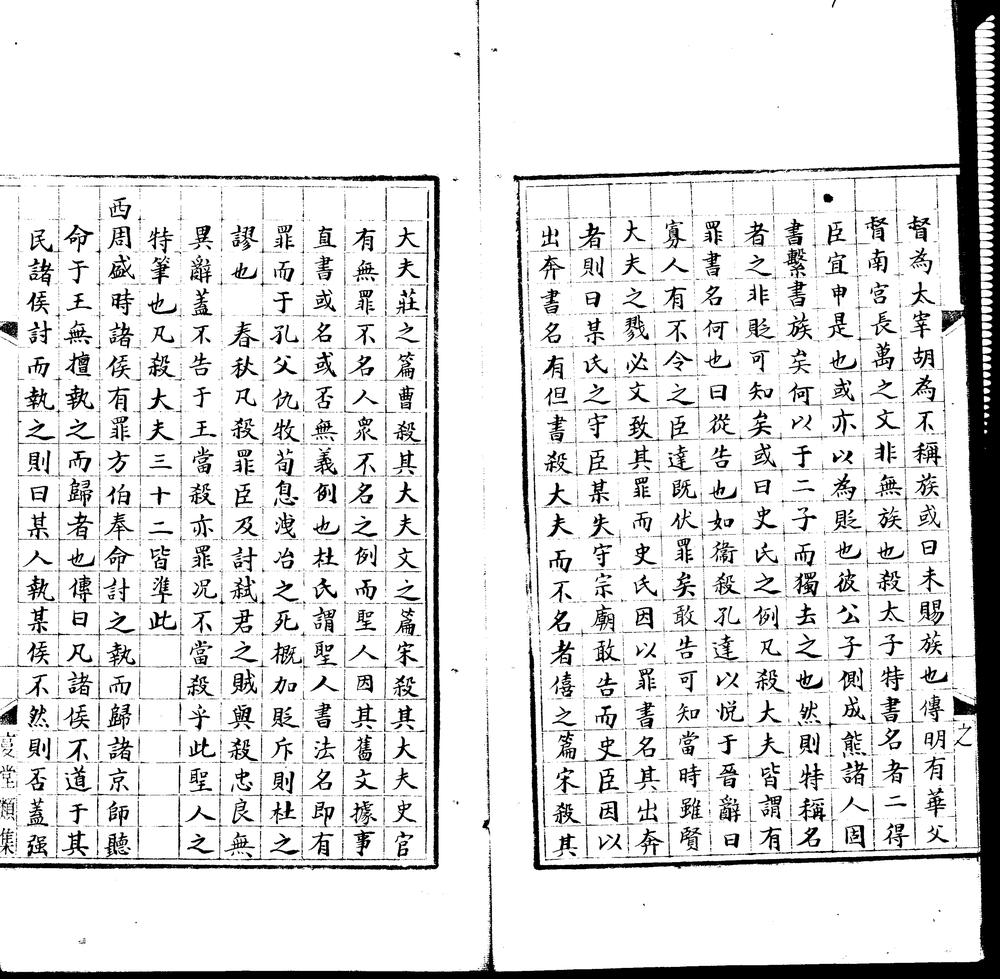 督為太宰胡為不稱族或曰未賜族也傳明有華父
督南宮長萬之文非無族也殺太子特書名者二得
臣宜申是也或亦以為貶也彼公子側成熊諸人固
書繫書族矣何以于二子而獨去之也然則特稱名
者之非貶可知矣或曰史氏之例凡殺大夫皆謂有
罪書名何也曰從告也如衞殺孔達以悅于晉辭曰
寡人有不令之臣達既伏罪矣敢告可知當時雖賢
大夫之戮必文致其罪而史氏因以罪書名其出奔
者則曰某氏之守臣某失守宗廟敢告而史臣因以
出奔書名有但書殺大夫而不名者僖之篇宋殺其
之
大夫莊之篇曹殺其大夫文之篇宋殺其大夫史官
有無罪不名人衆不名之例而聖人因其舊文據事
直書或名或否無義例也杜氏謂聖人書法名即有
罪而于孔父仇牧荀息洩冶之死概加貶斥則杜之
謬也　春秋凡殺罪臣及討弑君之賊與殺忠良無
異辭蓋不告于王當殺亦罪况不當殺乎此聖人之
特筆也凡殺大夫三十二皆準此
西周盛時諸侯有罪方伯奉命討之執而歸諸京師聽
命于王無擅執之而歸者也傳曰凡諸侯不道于其
民諸侯討而執之則曰某人執某侯不然則否蓋强
堂類集